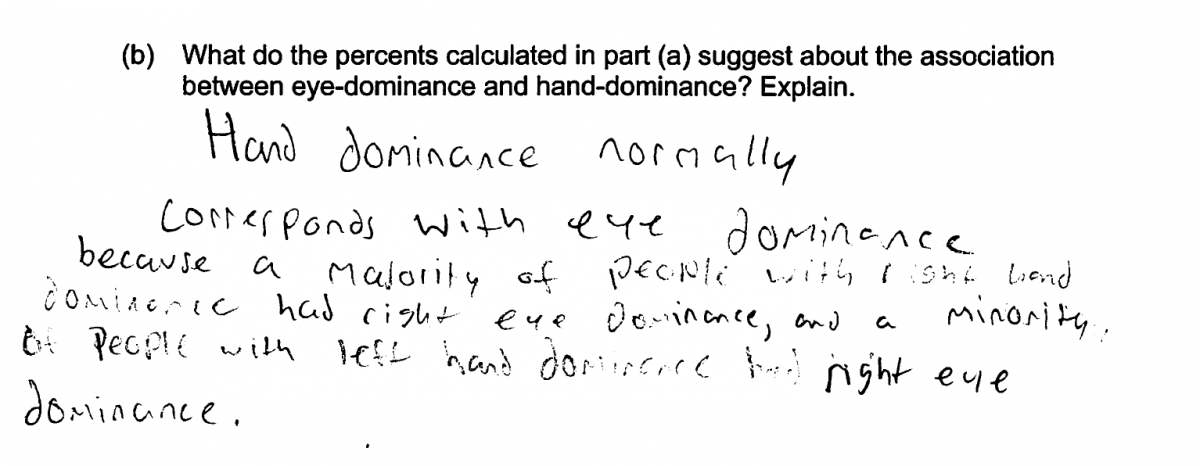 (b) What do the percents calculated in part (a) suggest about the association
between eye-dominance and hand-dominance? Explain.
Hand dominance normally
corresponds with eye dominance
because a majority of people with right hand
dominance had right eye dominance, and a minority
of people with left hand dominance had right eye
dominance.